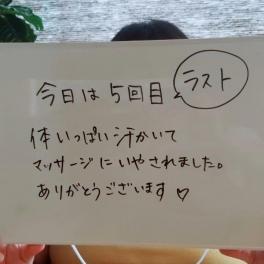 今日は5回目 ラスト
体いっぱい汗かいて
マッサージにいやされました。
ありがとうございます♡